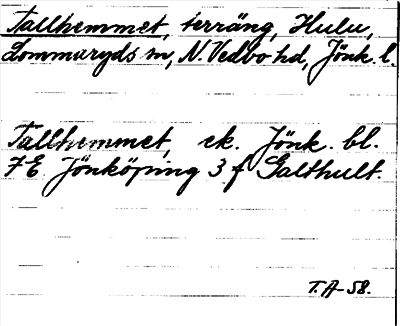 Tallhemmet, terräng, Hulu,
Lommaryds sn, N. Vedbo hd, Jönk. l.
Tallhemmet, ek. Jönk. bl.
7 E Jönköping 3 f Galthult.
T. A-58.